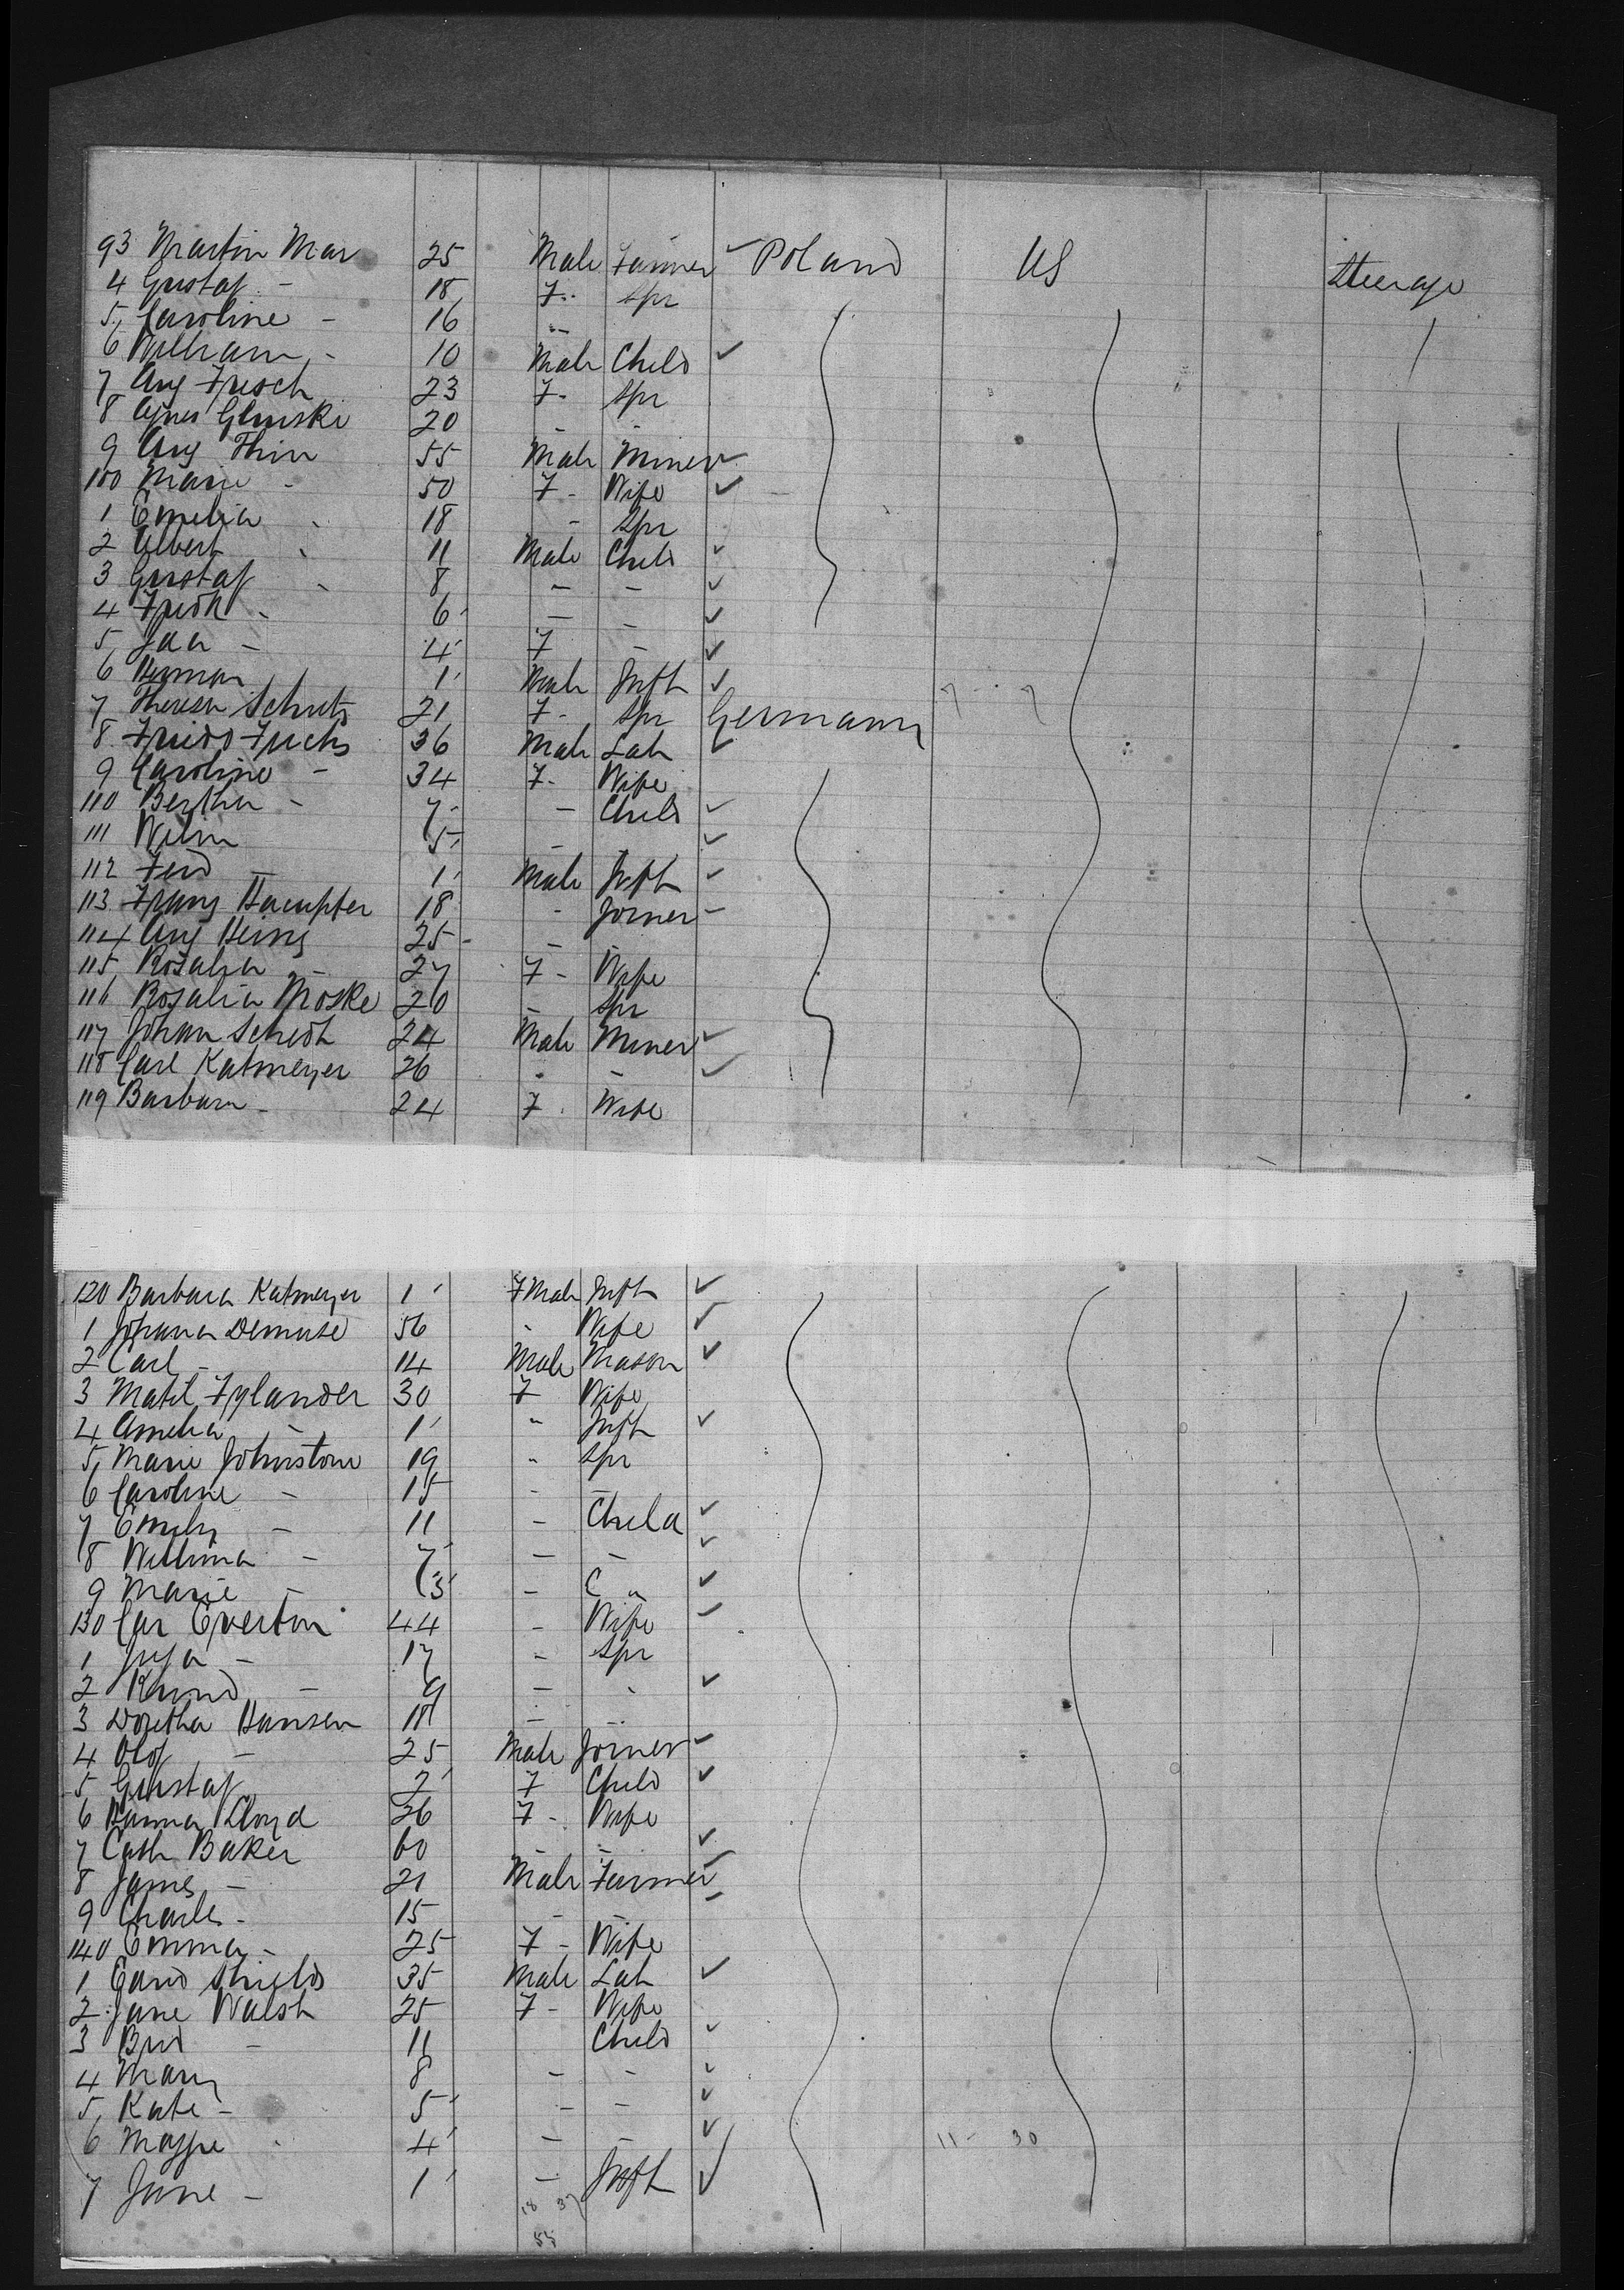 93 Martin Mar 25 Male Farmer ✓ Poland US Steerage
4 Gustaf - 18 F.. Spr
5, Caroline - 16 -
6 William - 10 Male Child ✓
7 Aug Fresch 23 F- Spr
8 Agnes Glinski 20 - -
9 Aug Thin 55 Male Miner ✓
100 Marie - 50 F- Wife ✓
1 Emelia - 18 - Spr
2 Albert - 11 Male Child ✓
3 Gustaf - 8 - - ✓
4 Fredk - 6 - - ✓
5, - 4 F - ✓
6 Herman 1 Male Infth ✓
7 Theresa Schutz 21 F- Spr Germany
8 Friedd Fuchs 36 Male Lab ✓
9 Caroline - 34 F- Wife
110 Bertha - 7 - Child ✓
111 Wilm 5 - - ✓
112 Ferd - 1 Male Infth ✓
113 Franz Haempfer 18 - Joiner -
114 Aug Heing 25 - -
115, Rosalia - 27 F- Wife
116 Rosalia Moske 20 - Spr
117 Johan Schedt 24 Male Miner ✓
118 Carl Katmeyer 26 - - ✓
119 Barbara - 24 F. Wife
120 Barbara Katmeyer 1 F Male Infth ✓
1 Johana Demuse 56 - Wife ✓
2 Carl - 14 Male Mason ✓
3 Matil Fylander 30 F Wife
4 Amelia - 1 " Infth ✓
5, Marie Johnstone 19 " Spr
6 Caroline - 15 - -
7 Emily - 11 - Child ✓
8 Willima - 7 - - ✓
9 Marie - 3 - C " ✓
130 Car Everton 44 - Wife ✓
1 - 17 - Spr
2 - 9 - - ✓
3 Dorethea Hansen 18 - -
4 Olof - 25 Male Joiner ✓
5 Gustaf 2 F Child ✓
6 Hanna Lloyd 26 F- Wife
7 Cath Baker 60 - - ✓
8 James - 21 Male Farmer ✓
9 Charles - 15 - - ✓
140 Emma - 25 F- Wife
1 Edwd Shields 35 Male Lab ✓
2 Jane Walsh 25 F- Wife
3 Brid - 11 Child ✓
4 Mary 8 - - ✓
5, Kate - 5 - - ✓
6 Maggie - 4 - - ✓
11 - 30
7 Jane - 1 - Infth ✓
18 37
55